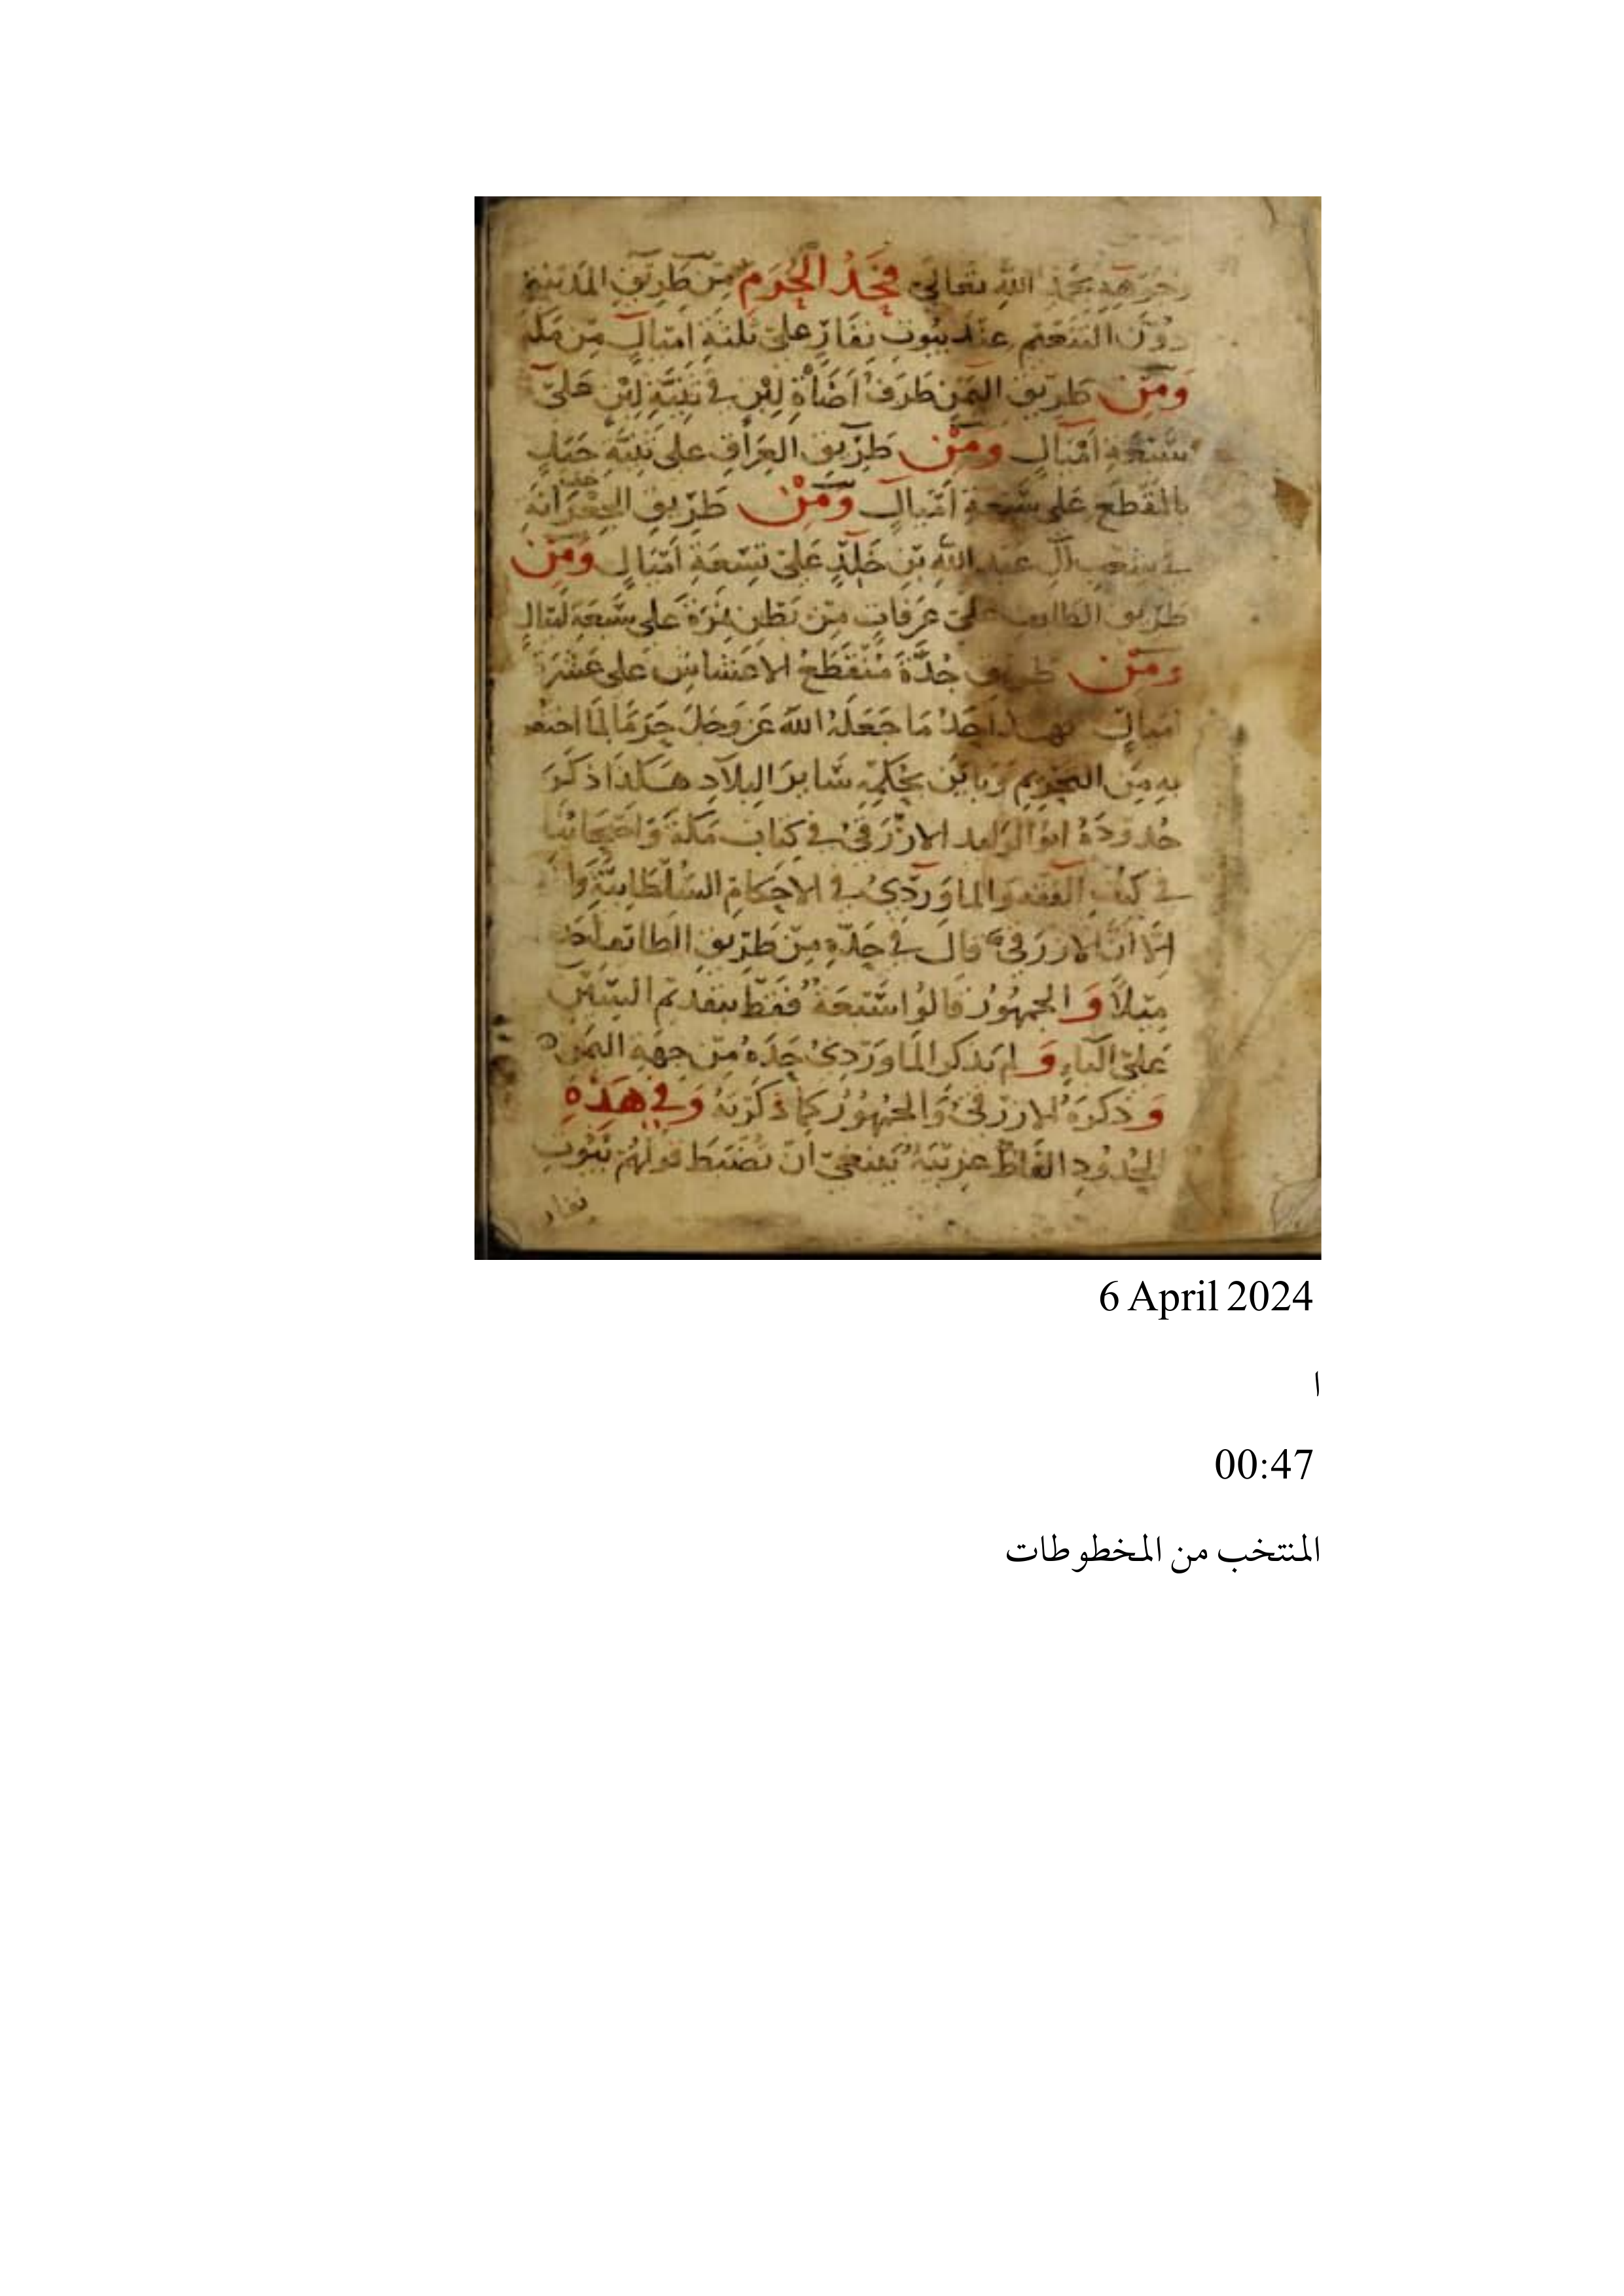 الله تعالى فحد الحرم من طريق المدينة
دون التنعيم عند بيوت نفار على ثلثة اميال من مكة
ومن طريق اليمن طرف اضاة لبن في ثنية لبن على
سبعة اميال ومن طريق العراق على ثنية جبل
بالمقطع على سبعة اميال ومن طريق الجعرانة
في شعب آل عبد الله بن خلد على تسعة اميال ومن
طريق الطايف على عرفات من بطن نمرة على سبعة اميال
ومن طريق جدة منقطع الاعشاش على عشرة
اميال فهذا حد ما جعله الله عز وجل حرما لما اختص
به من التحريم وباين بحكمه سائر البلاد هكذا ذكر
حدوده ابو الوليد الازرقي في كتاب مكة واصحابنا
في كتب الفقه والماوردي في الاحكام السلطانية
الا ان الازرقي قال في حده من طريق الطائف
ميلا و الجمهور قالوا سبعة فقط بتقديم السين
على الباء و لم يذكر الماوردي حده من جهة اليمن
و ذكره الازرقي والجمهور كما ذكرته وفي هذه
الحدود الفاظ غريبة ينبغي ان تضبط قولهم بيوت
نفار
6 April 2024
ا
00:47
المنتخب من المخطوطات